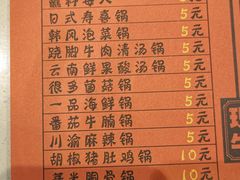 日式寿喜锅 5元
韩风泡菜锅 5元
跷脚牛肉清汤锅 5元
云南鲜果酸汤锅 5元
很多菌菇锅 5元
一品海鲜锅 5元
番茄牛腩锅 5元
川渝麻辣锅 5元
胡椒猪肚鸡锅 10元